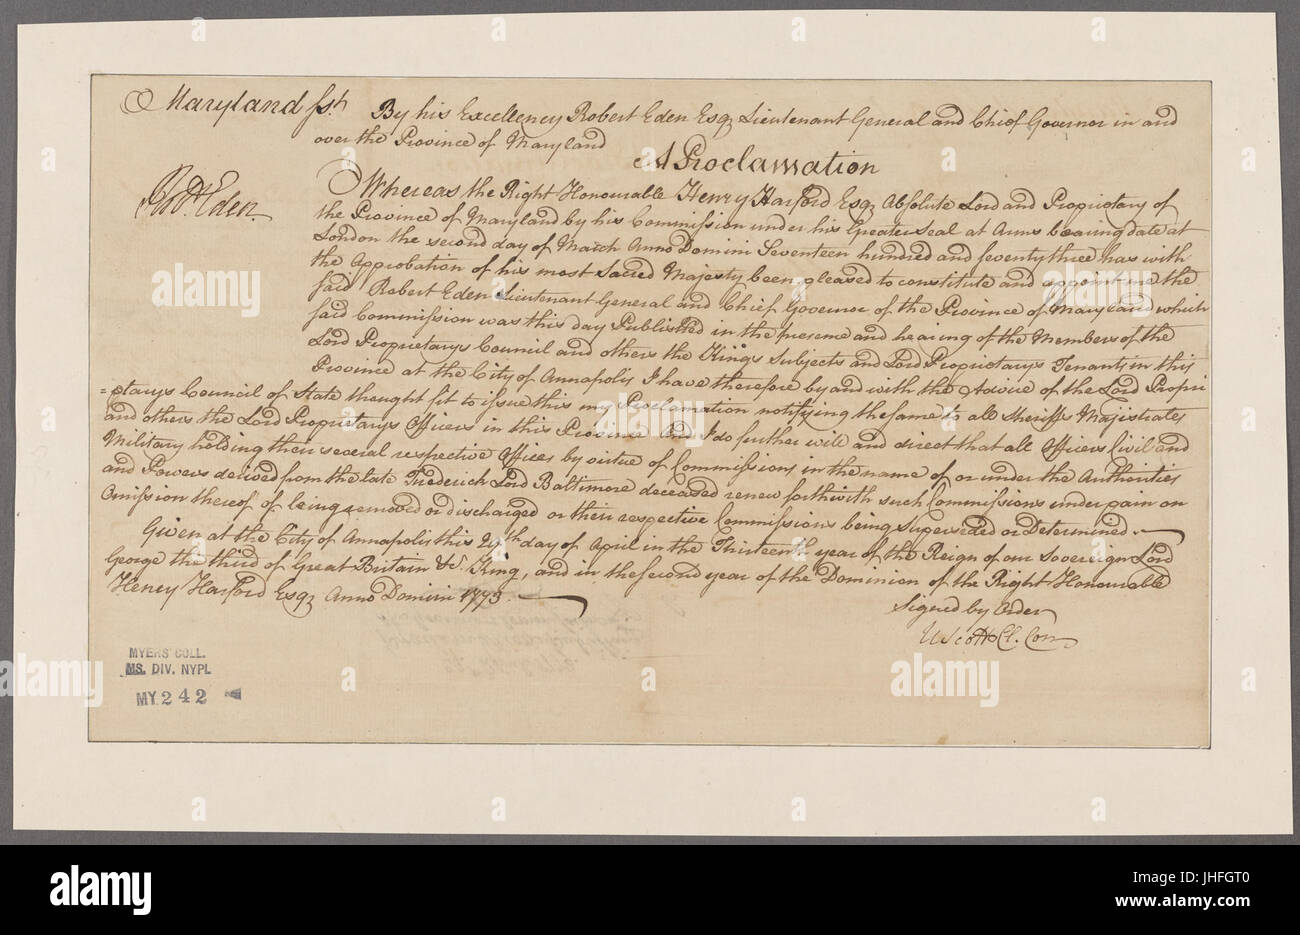 Maryland Ss.t
By his Excellency Robert Eden Esqr Lieutenant General and Chief Governor in and
over the Province of Maryland
A Proclamation
Robt. Eden
Whereas the Right Honourable Henry Harford Esqr Absolute Lord and Proprietary of
the Province of Maryland by his Commission under his Greater Seal at Arms bearing date at
London the second day of March Anno Domini Seventeen hundred and seventy three has with
the Approbation of his most Sacred Majesty been pleased to constitute and appoint me the
said Robert Eden Lieutenant General and Chief Governor of the Province of Maryland which
said Commission was this day Published in the presence and hearing of the Members of the
Lord Proprietarys Council and others the Kings Subjects and Lord Proprietarys Tenants in this
Province at the City of Annapolis I have therefore by and with the Advice of the Lord Propri
=etarys Council of State thought fit to issue this my Proclamation notifying the same to all Sheriffs Magistrates
and others the Lord Proprietarys Officers in this Province And I do further will and direct that all Officers Civil and
Military holding their several respective Offices by virtue of Commissions in the name of, or under the Authorities
and Powers derived from the late Frederick Lord Baltimore deceased renew forthwith such Commissions under pain on
Omission thereof of being removed or discharged or their respective Commissions being superseded or Determined.
Given at the City of Annapolis this day of April in the Thirteenth year of the Reign of our Sovereign Lord
George the third of Great Britain &c. King, and in the second year of the Dominion of the Right Honourable
Henry Harford Esqr Anno Domini 1773.
Signed by Order
U Scott Cl. Con
MYERS COLL.
MS. DIV. NYPL
MY 242
alamy stock photo
alamy
Image ID: JHFGT0
www.alamy.com